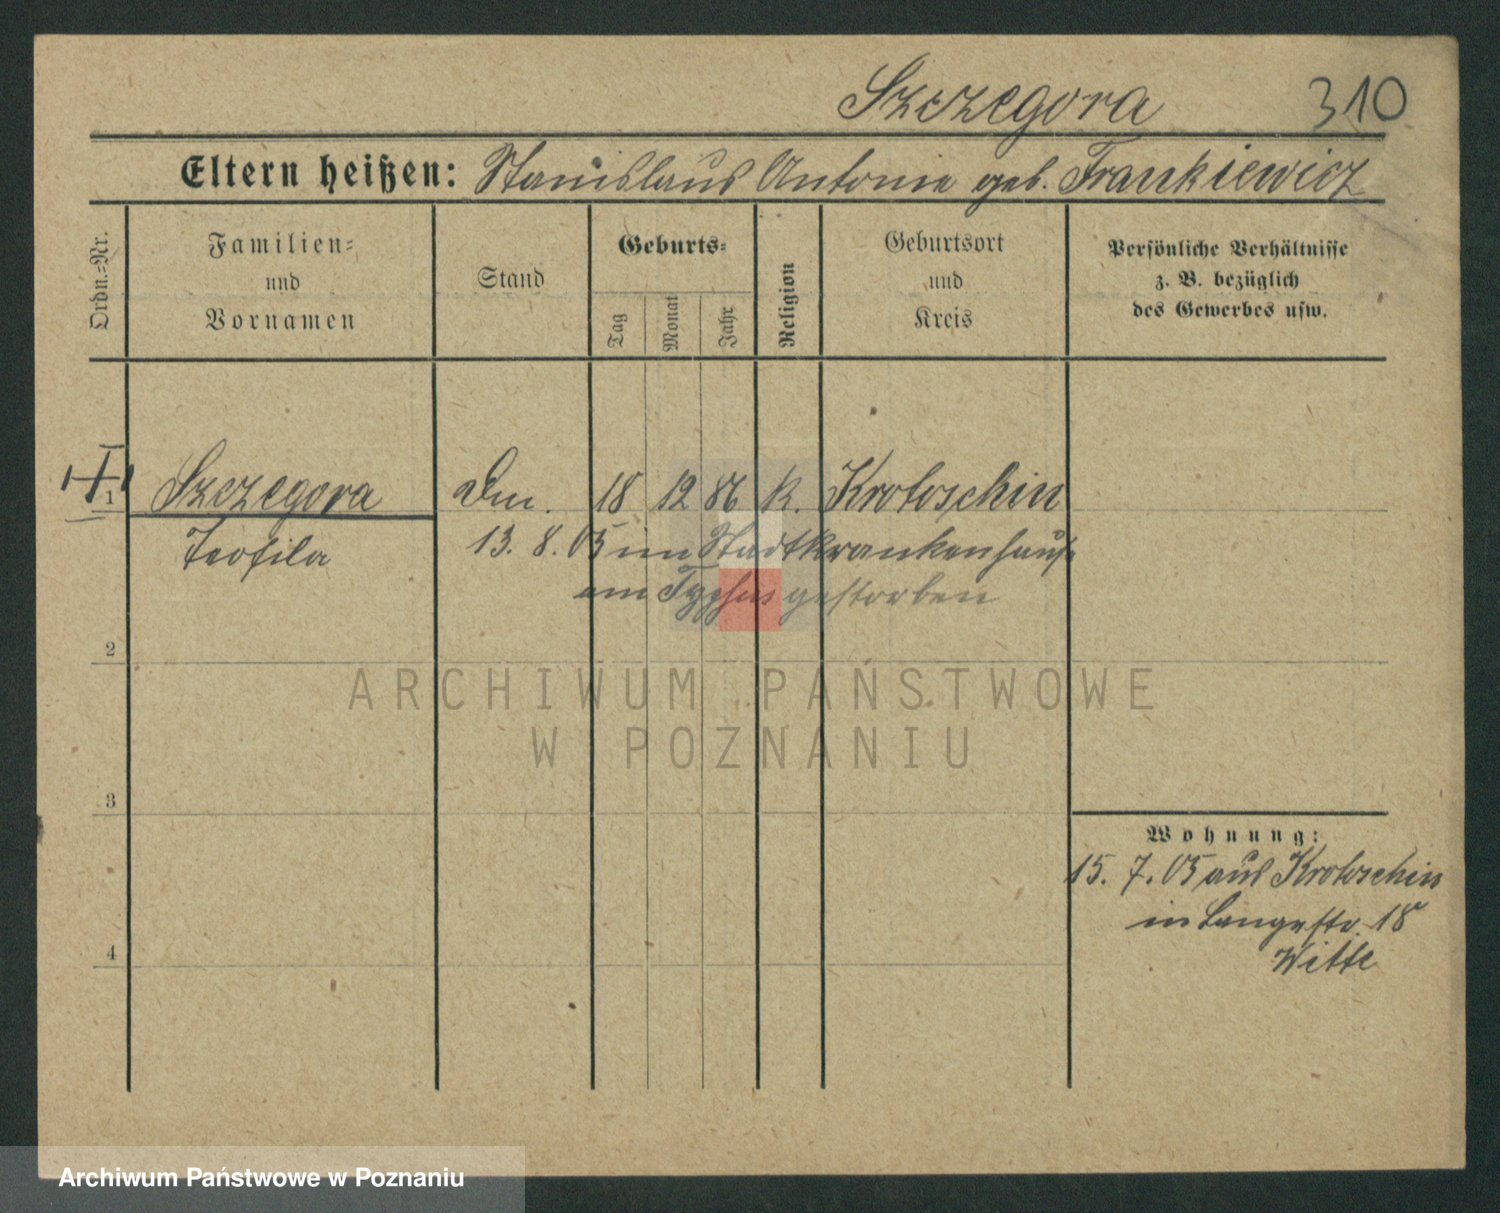 Szczegora 310
Eltern heißen: Stanislaus Antonie geb. Frankiewicz
Ordn.=Nr.
Familien=
und
Vornamen
Stand
Geburts=
Tag
Monat
Jahr
Religion
Geburtsort
und
Kreis
Persönliche Verhältnisse
z. B. bezüglich
des Gewerbes usw.
1 Szczegora 18 12 86 k. Krotoschin
Teofila 13. 8. 05 im Stadtkrankenhause
am Typhus gestorben
2
ARCHIWUM PAŃSTWOWE
W POZNANIU
3
Wohnung:
15. 7. 05 aus Krotoschin
in Langestr. 18
Witte
4
Archiwum Państwowe w Poznaniu